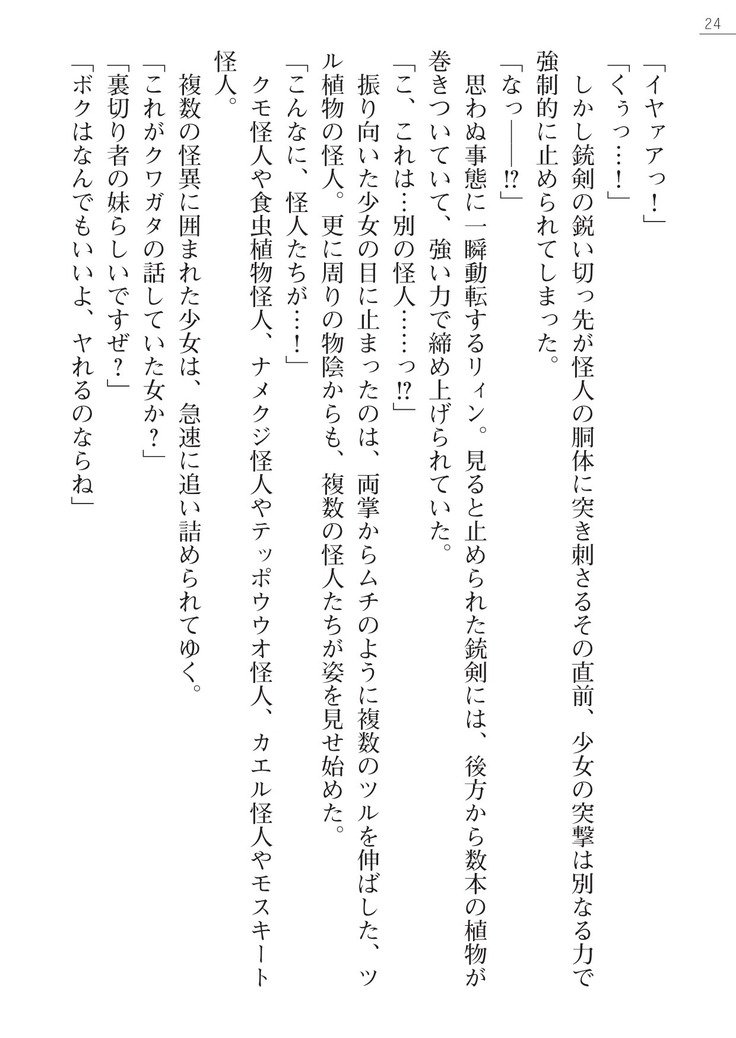 24
「イヤァアっ！」
「くぅっ…！」
　しかし銃剣の鋭い切っ先が怪人の胴体に突き刺さるその直前、少女の突撃は別なる力で
強制的に止められてしまった。
「なっ――!?」
　思わぬ事態に一瞬動転するリィン。見ると止められた銃剣には、後方から数本の植物が
巻きついていて、強い力で締め上げられていた。
「こ、これは…別の怪人……っ!?」
　振り向いた少女の目に止まったのは、両掌からムチのように複数のツルを伸ばした、ツ
ル植物の怪人。更に周りの物陰からも、複数の怪人たちが姿を見せ始めた。
「こんなに、怪人たちが…！」
　クモ怪人や食虫植物怪人、ナメクジ怪人やテッポウウオ怪人、カエル怪人やモスキート
怪人。
　複数の怪異に囲まれた少女は、急速に追い詰められてゆく。
「これがクワガタの話していた女か？」
「裏切り者の妹らしいですぜ？」
「ボクはなんでもいいよ、ヤれるのならね」